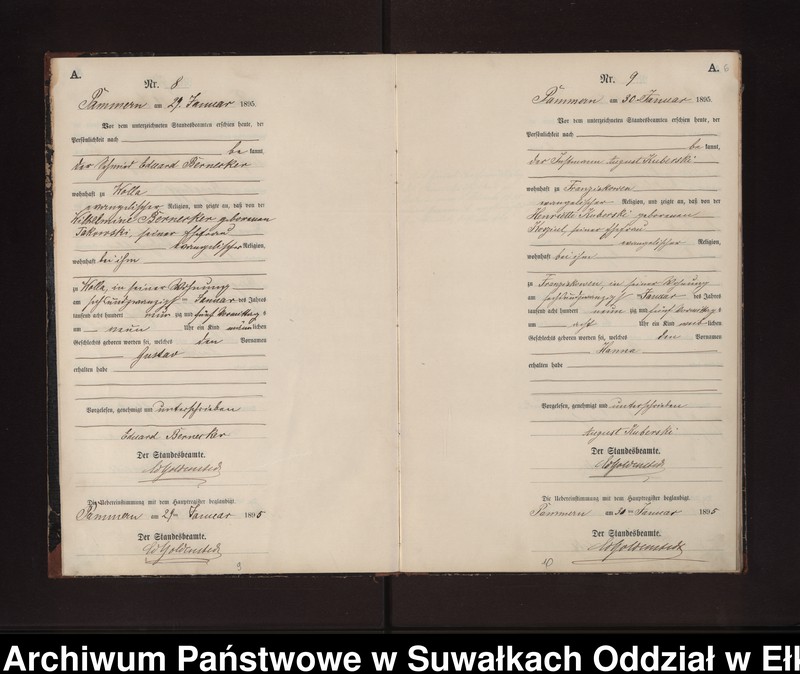 A.
Nr. 8
Pammern am 29. Januar 1895.
Vor dem unterzeichneten Standesbeamten erschien heute, der
Persönlichkeit nach
bekannt,
der Schmied Eduard Bernecker
wohnhaft zu Kolla
evangelischer Religion, und zeigte an, daß von der
Wilhelmine Bernecker geborenen
seiner Ehefrau
evangelischer Religion,
wohnhaft bei ihm
zu Kolla, in seiner Wohnung
am sechsundzwanzigsten Januar des Jahres
tausend acht hundert neunzig und fünf Vormittags
um neun Uhr ein Kind männlichen
Geschlechts geboren worden sei, welches den Vornamen
Gustav
erhalten habe
Vorgelesen, genehmigt und unterschrieben
Eduard Bernecker
Der Standesbeamte.
Die Uebereinstimmung mit dem Hauptregister beglaubigt.
Pammern am 29ten Januar 1895
Der Standesbeamte.
9
A. 6
Nr. 9
Pammern am 30 Januar 1895.
Vor dem unterzeichneten Standesbeamten erschien heute, der
Persönlichkeit nach
bekannt,
der Instmann August Kuberski
wohnhaft zu Franziskowen
evangelischer Religion, und zeigte an, daß von der
Henriette Kuberski geborenen
Kogiel, seiner Ehefrau
evangelischer Religion,
wohnhaft bei ihm
zu Franziskowen, in seiner Wohnung
am sechsundzwanzigsten Januar des Jahres
tausend acht hundert neunzig und fünf Vormittags
um acht Uhr ein Kind weiblichen
Geschlechts geboren worden sei, welches den Vornamen
Hanna
erhalten habe
Vorgelesen, genehmigt und unterschrieben
August Kuberski
Der Standesbeamte.
Die Uebereinstimmung mit dem Hauptregister beglaubigt.
Pammern am 30ten Januar 1895
Der Standesbeamte.
10
Archiwum Państwowe w Suwałkach Oddział w Ełk